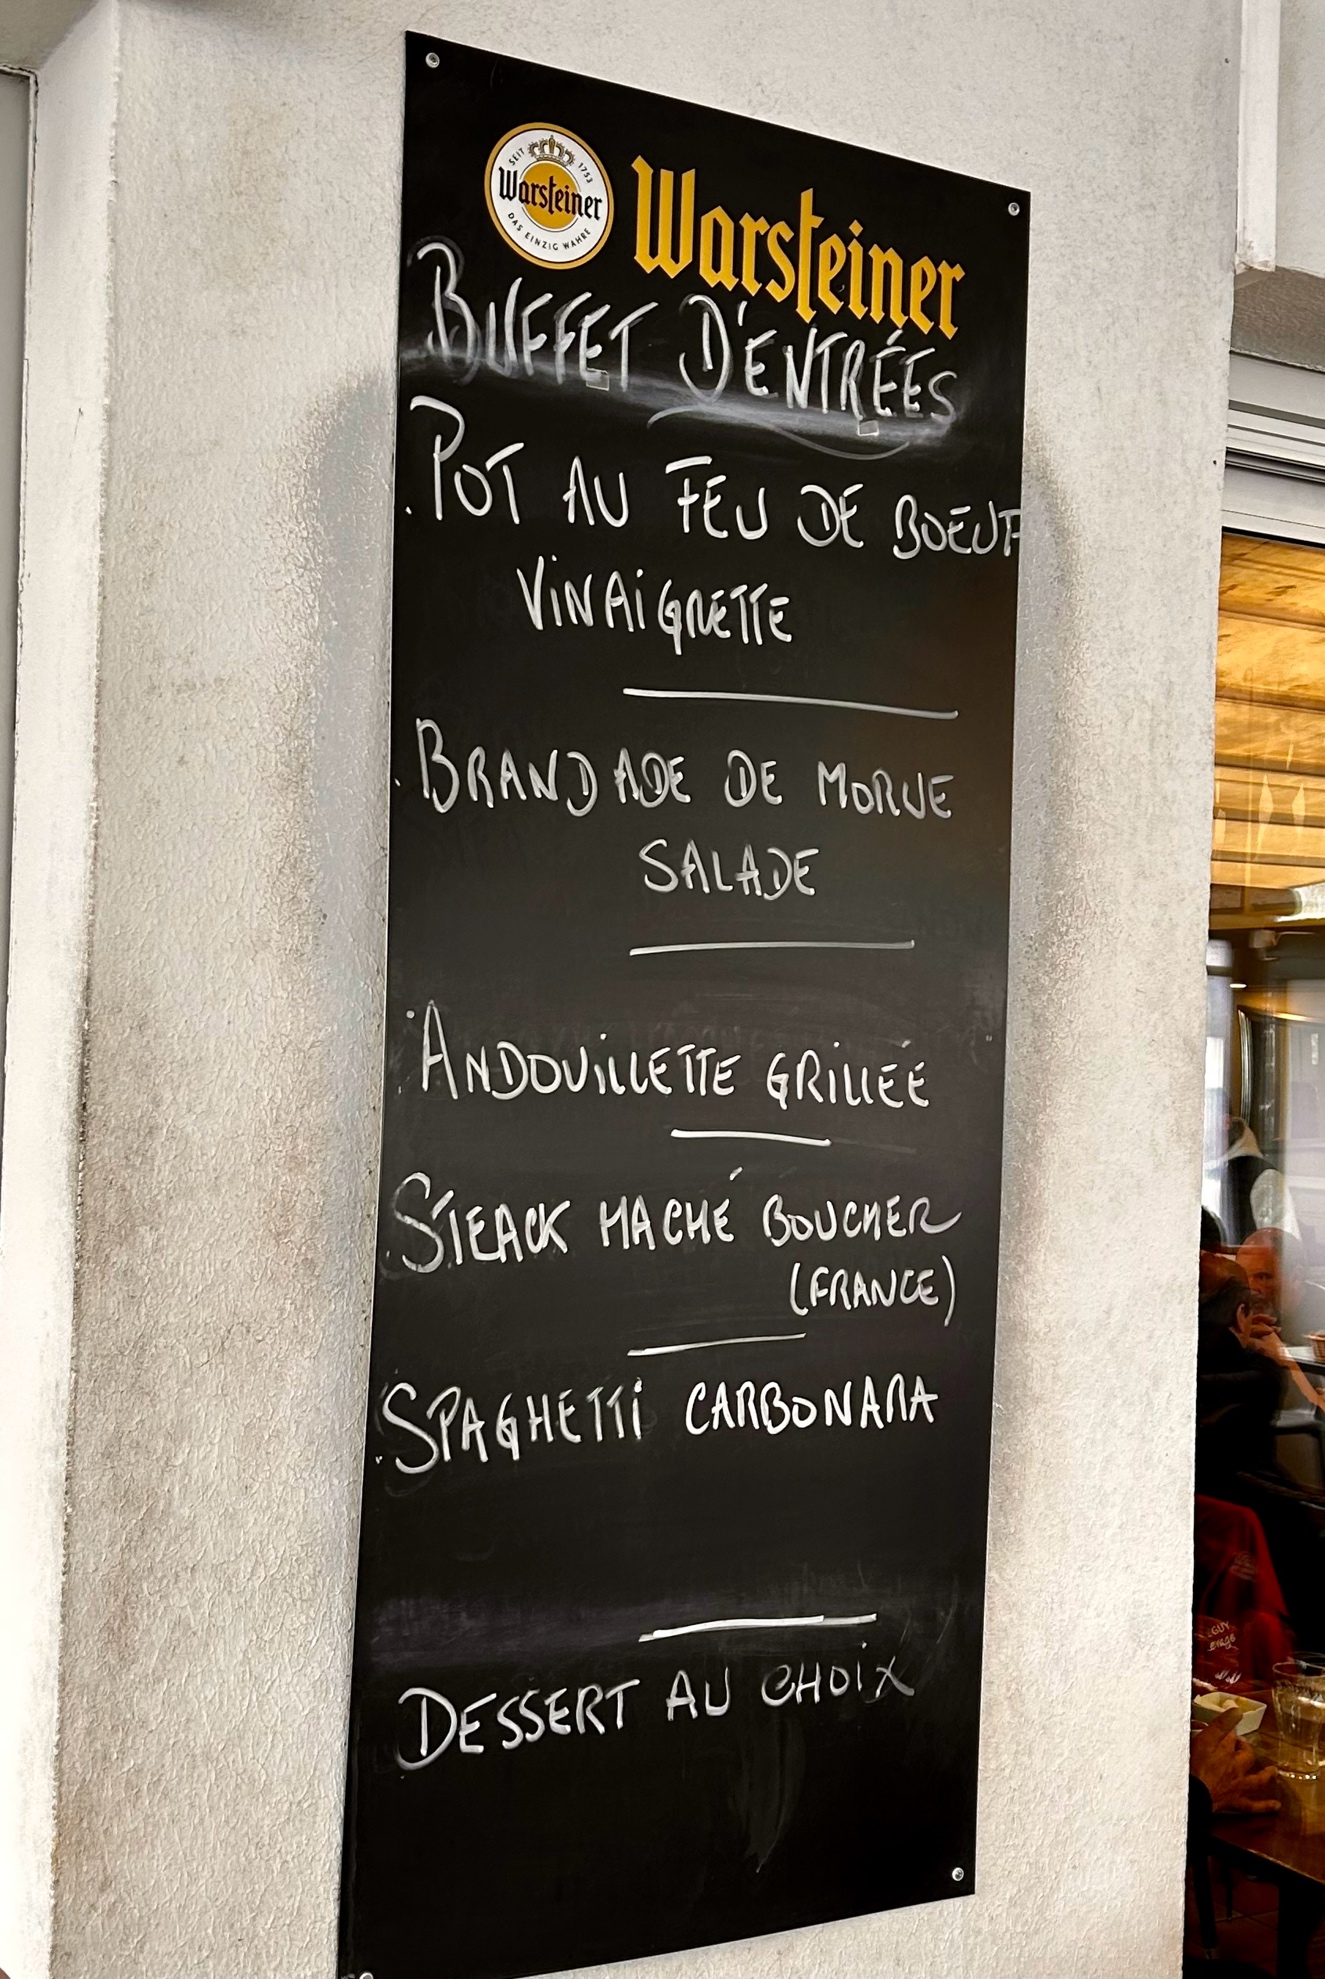 SEIT 1753
Warsteiner
DAS EINZIG WAHRE
Warsteiner
BUFFET D'ENTRÉES
.POT AU FEU DE BOEUF
VINAIGRETTE
.BRANDADE DE MORUE
SALADE
.ANDOUILLETTE GRILLÉE
.STEACK HACHÉ BOUCHER
(FRANCE)
.SPAGHETTI CARBONARA
DESSERT AU CHOIX